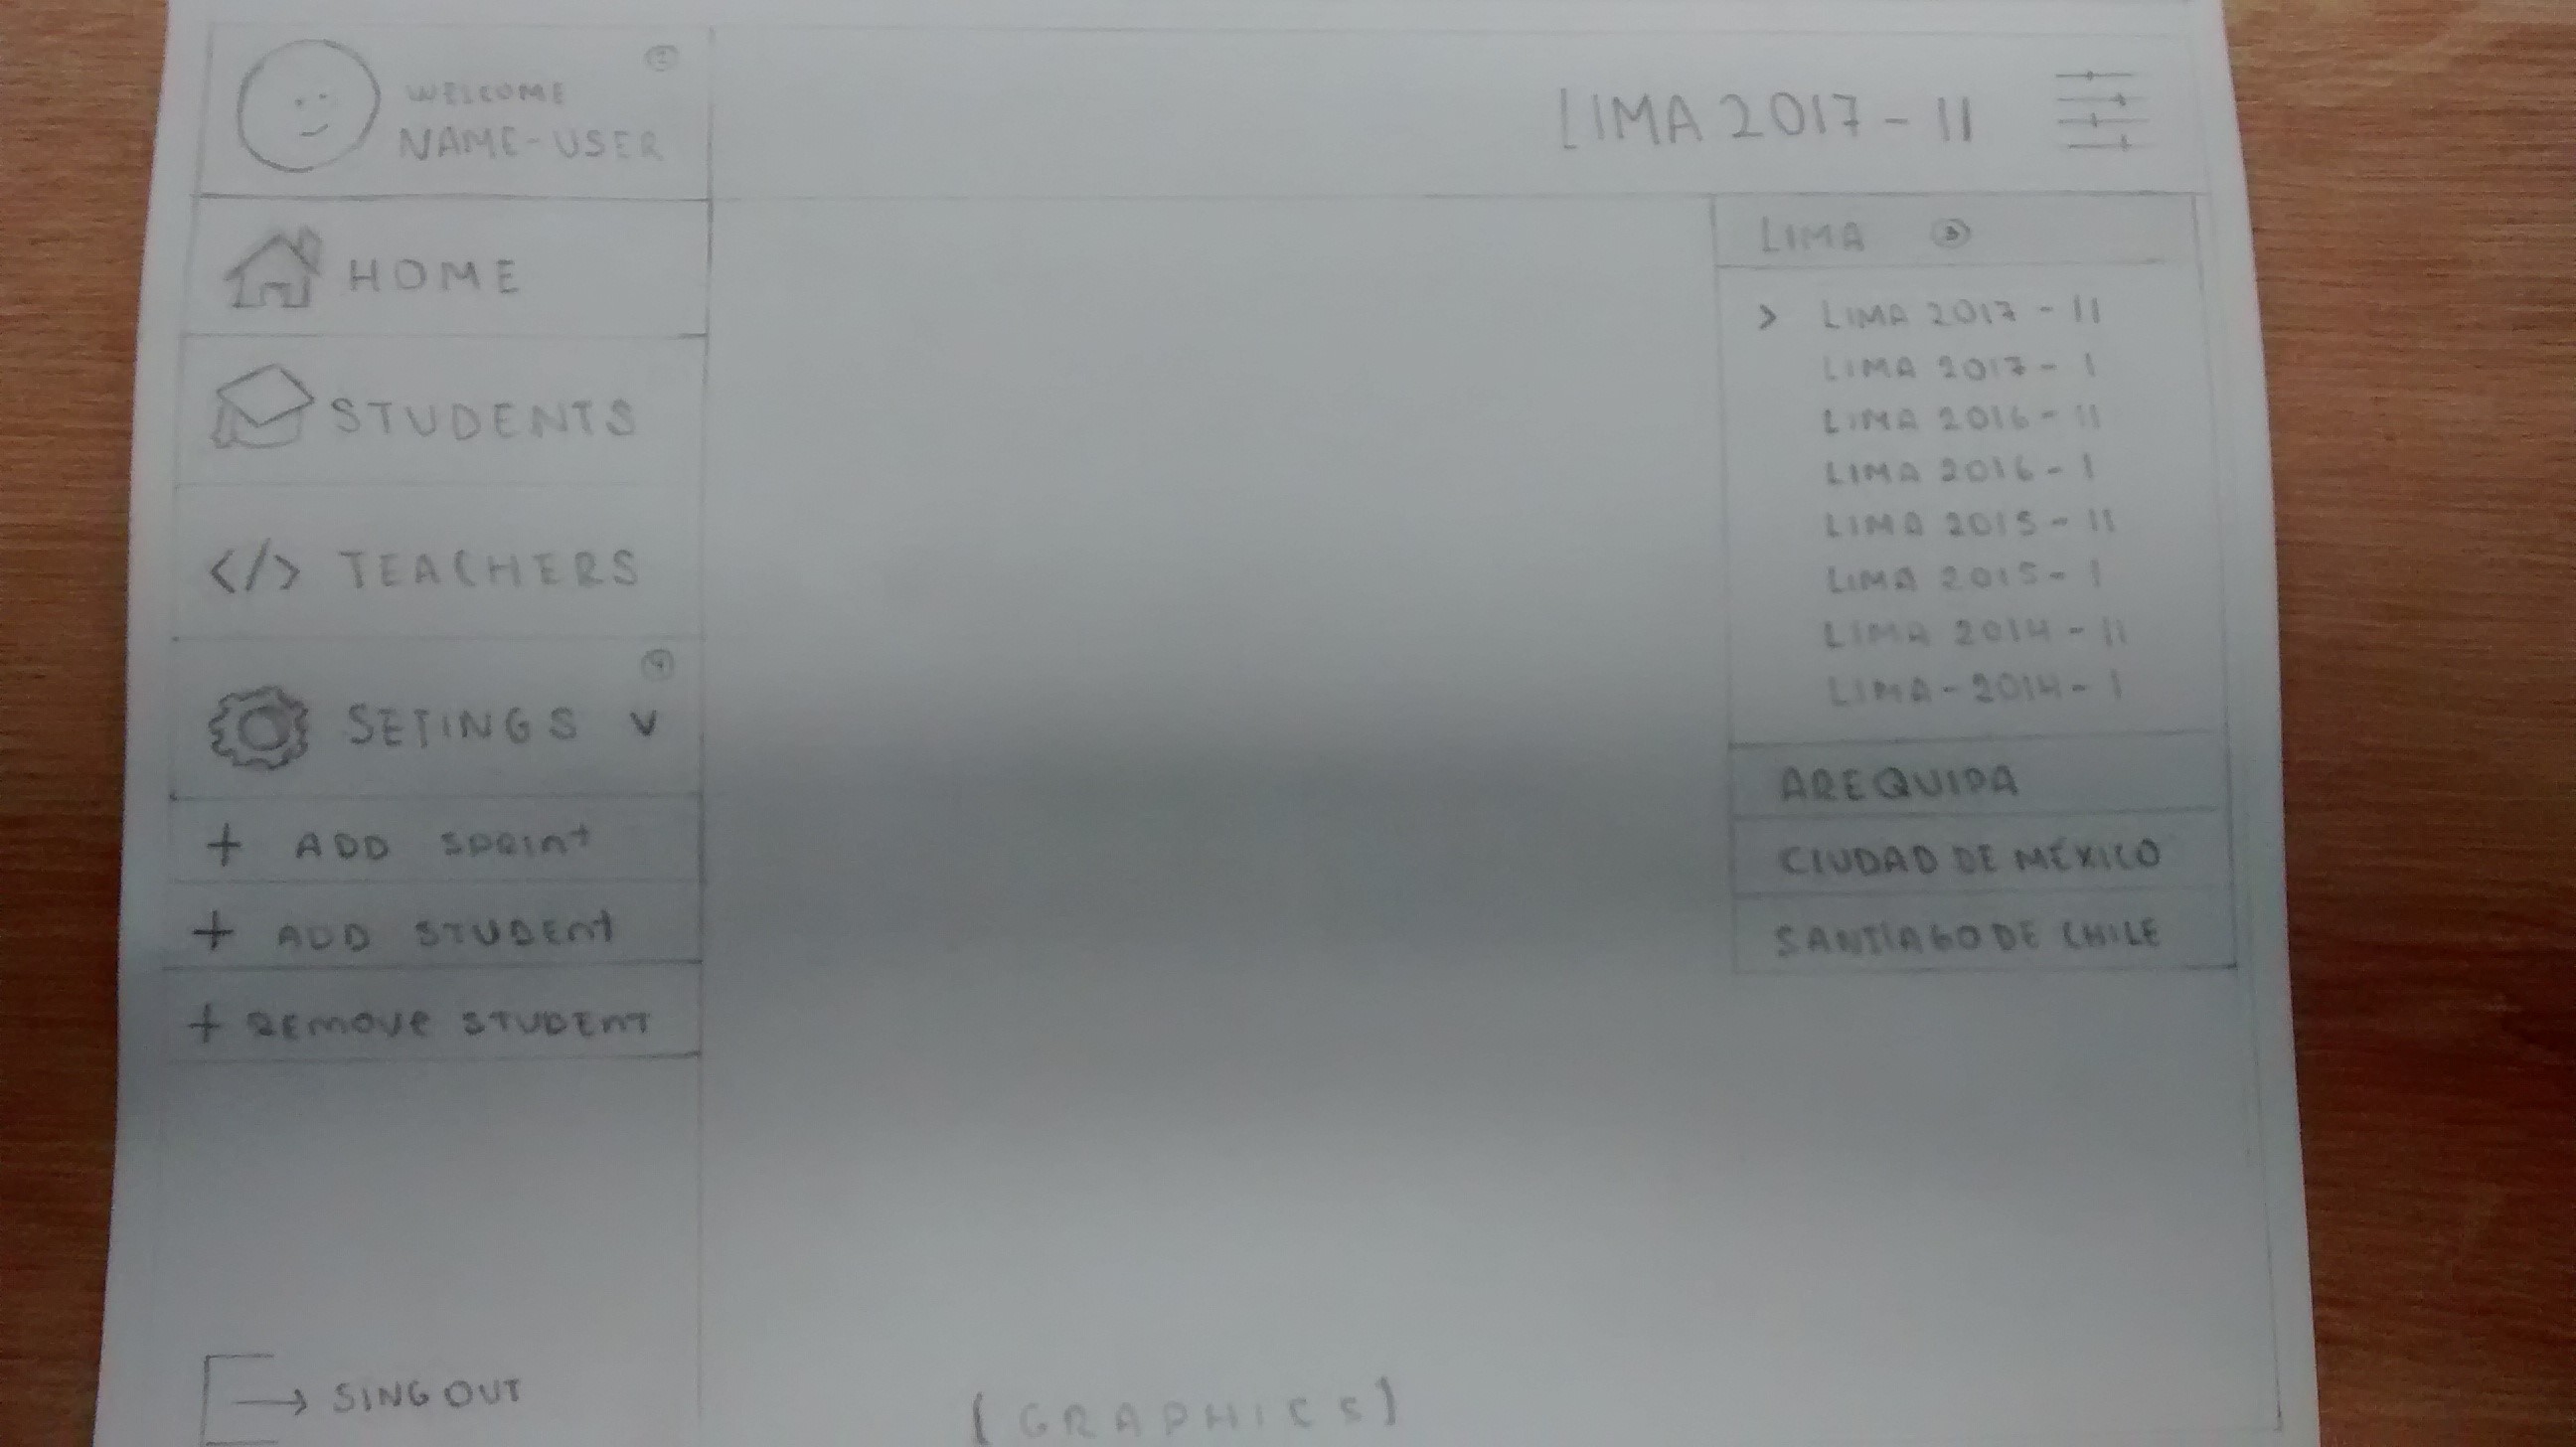 ②
WELCOME
NAME-USER
LIMA 2017 - II
HOME
STUDENTS
</> TEACHERS
④
SETINGS V
+ ADD Sprint
+ ADD STUDENT
+ REMOVE STUDENT
SING OUT
LIMA ③
> LIMA 2017 - II
LIMA 2017 - I
LIMA 2016 - II
LIMA 2016 - I
LIMA 2015 - II
LIMA 2015 - I
LIMA 2014 - II
LIMA - 2014 - I
AREQUIPA
CIUDAD DE MÉXICO
SANTIAGO DE CHILE
(GRAPHICS)